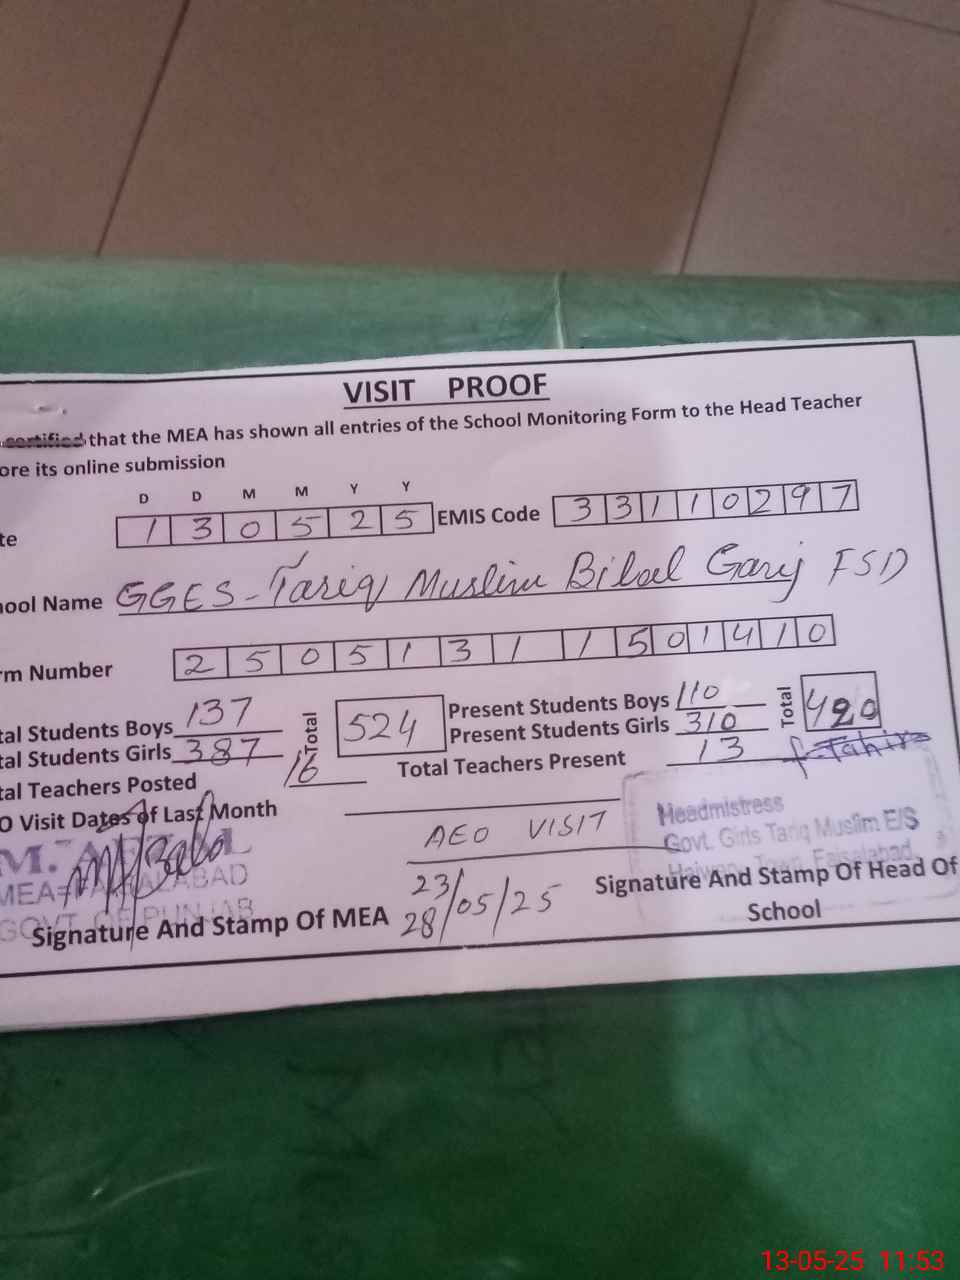 VISIT PROOF
certified that the MEA has shown all entries of the School Monitoring Form to the Head Teacher
ore its online submission
D D M M Y Y
te 1 3 0 5 2 5 EMIS Code 3 3 1 1 0 2 9 7
hool Name GGES-Tariq Muslim Bilal Ganj FSD
rm Number 2 5 0 5 1 3 1 1 5 0 1 4 1 0
tal Students Boys 137 Total 524 Present Students Boys 110 Total 420
tal Students Girls 387 Present Students Girls 310
tal Teachers Posted 16 Total Teachers Present 13
O Visit Dates of Last Month
AEO VISIT
23/
28/05/25
M.
MEA
GOVT. OF PUNJAB
Signature And Stamp Of MEA
f. Tahira
Headmistress
Govt. Girls Tariq Muslim E/S
Town, Faisalabad
Signature And Stamp Of Head Of
School
13-05-25 11:53